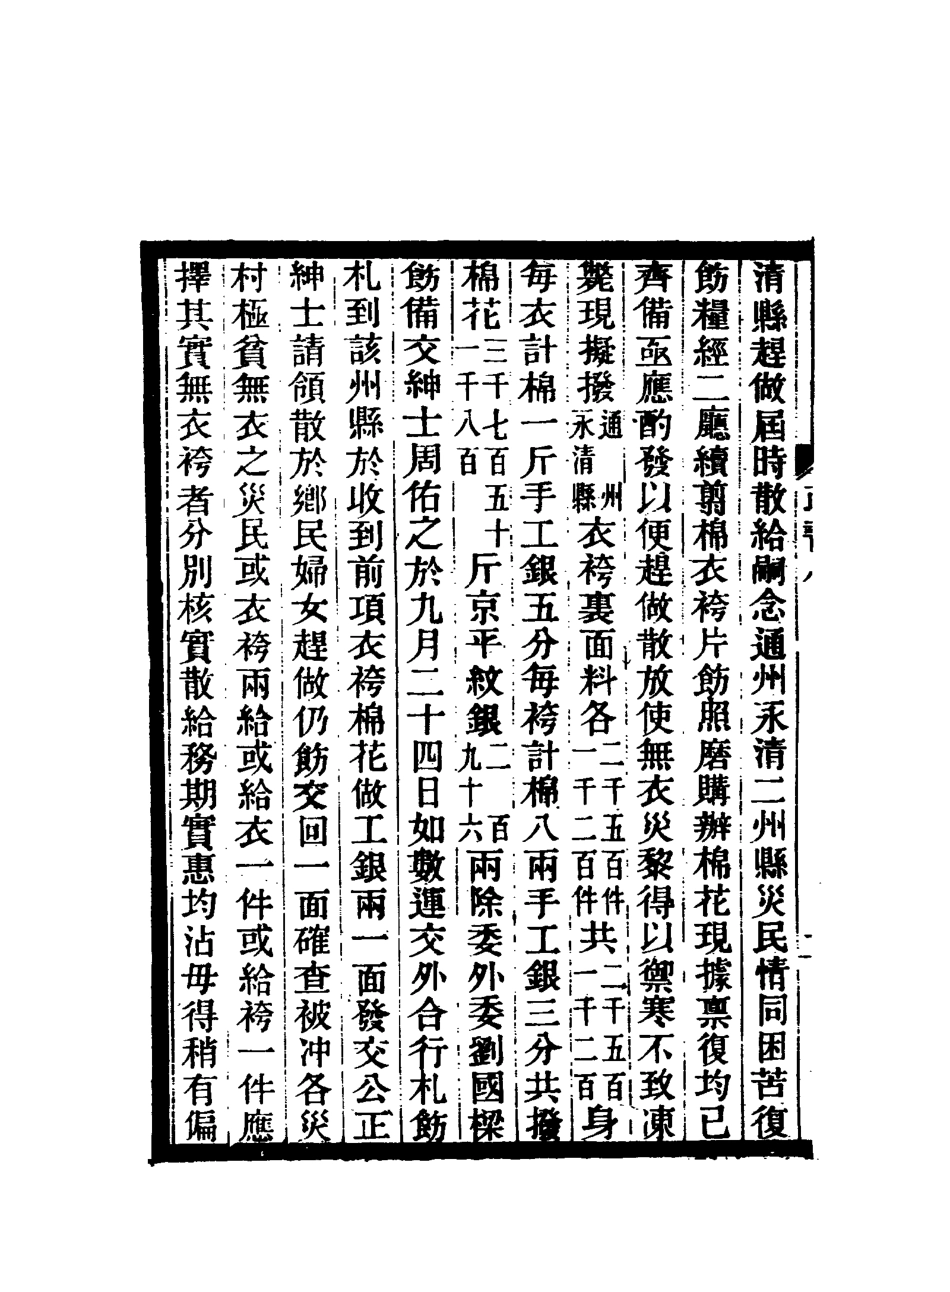 清縣趕做屆時散給嗣念通州永清二州縣災民情同困苦復
飭糧經二廳續剪棉衣袴片飭照磨購辦棉花現據稟復均已
齊備亟應酌發以便趕做散放使無衣災黎得以禦寒不致凍
斃現擬撥通州永清縣衣袴裏面料各二千五百件一千二百件共二千五百一千二百身
每衣計棉一斤手工銀五分每袴計棉八兩手工銀三分共撥
棉花三千七百五十一千八百斤京平紋銀二百九十六兩除委外委劉國樑
飭備交紳士周佑之於九月二十四日如數運交外合行札飭
札到該州縣於收到前項衣袴棉花做工銀兩一面發交公正
紳士請領散於鄉民婦女趕做仍飭交回一面確查被冲各災
村極貧無衣之災民或衣袴兩給或給衣一件或給袴一件應
擇其實無衣袴者分別核實散給務期實惠均沾毋得稍有偏